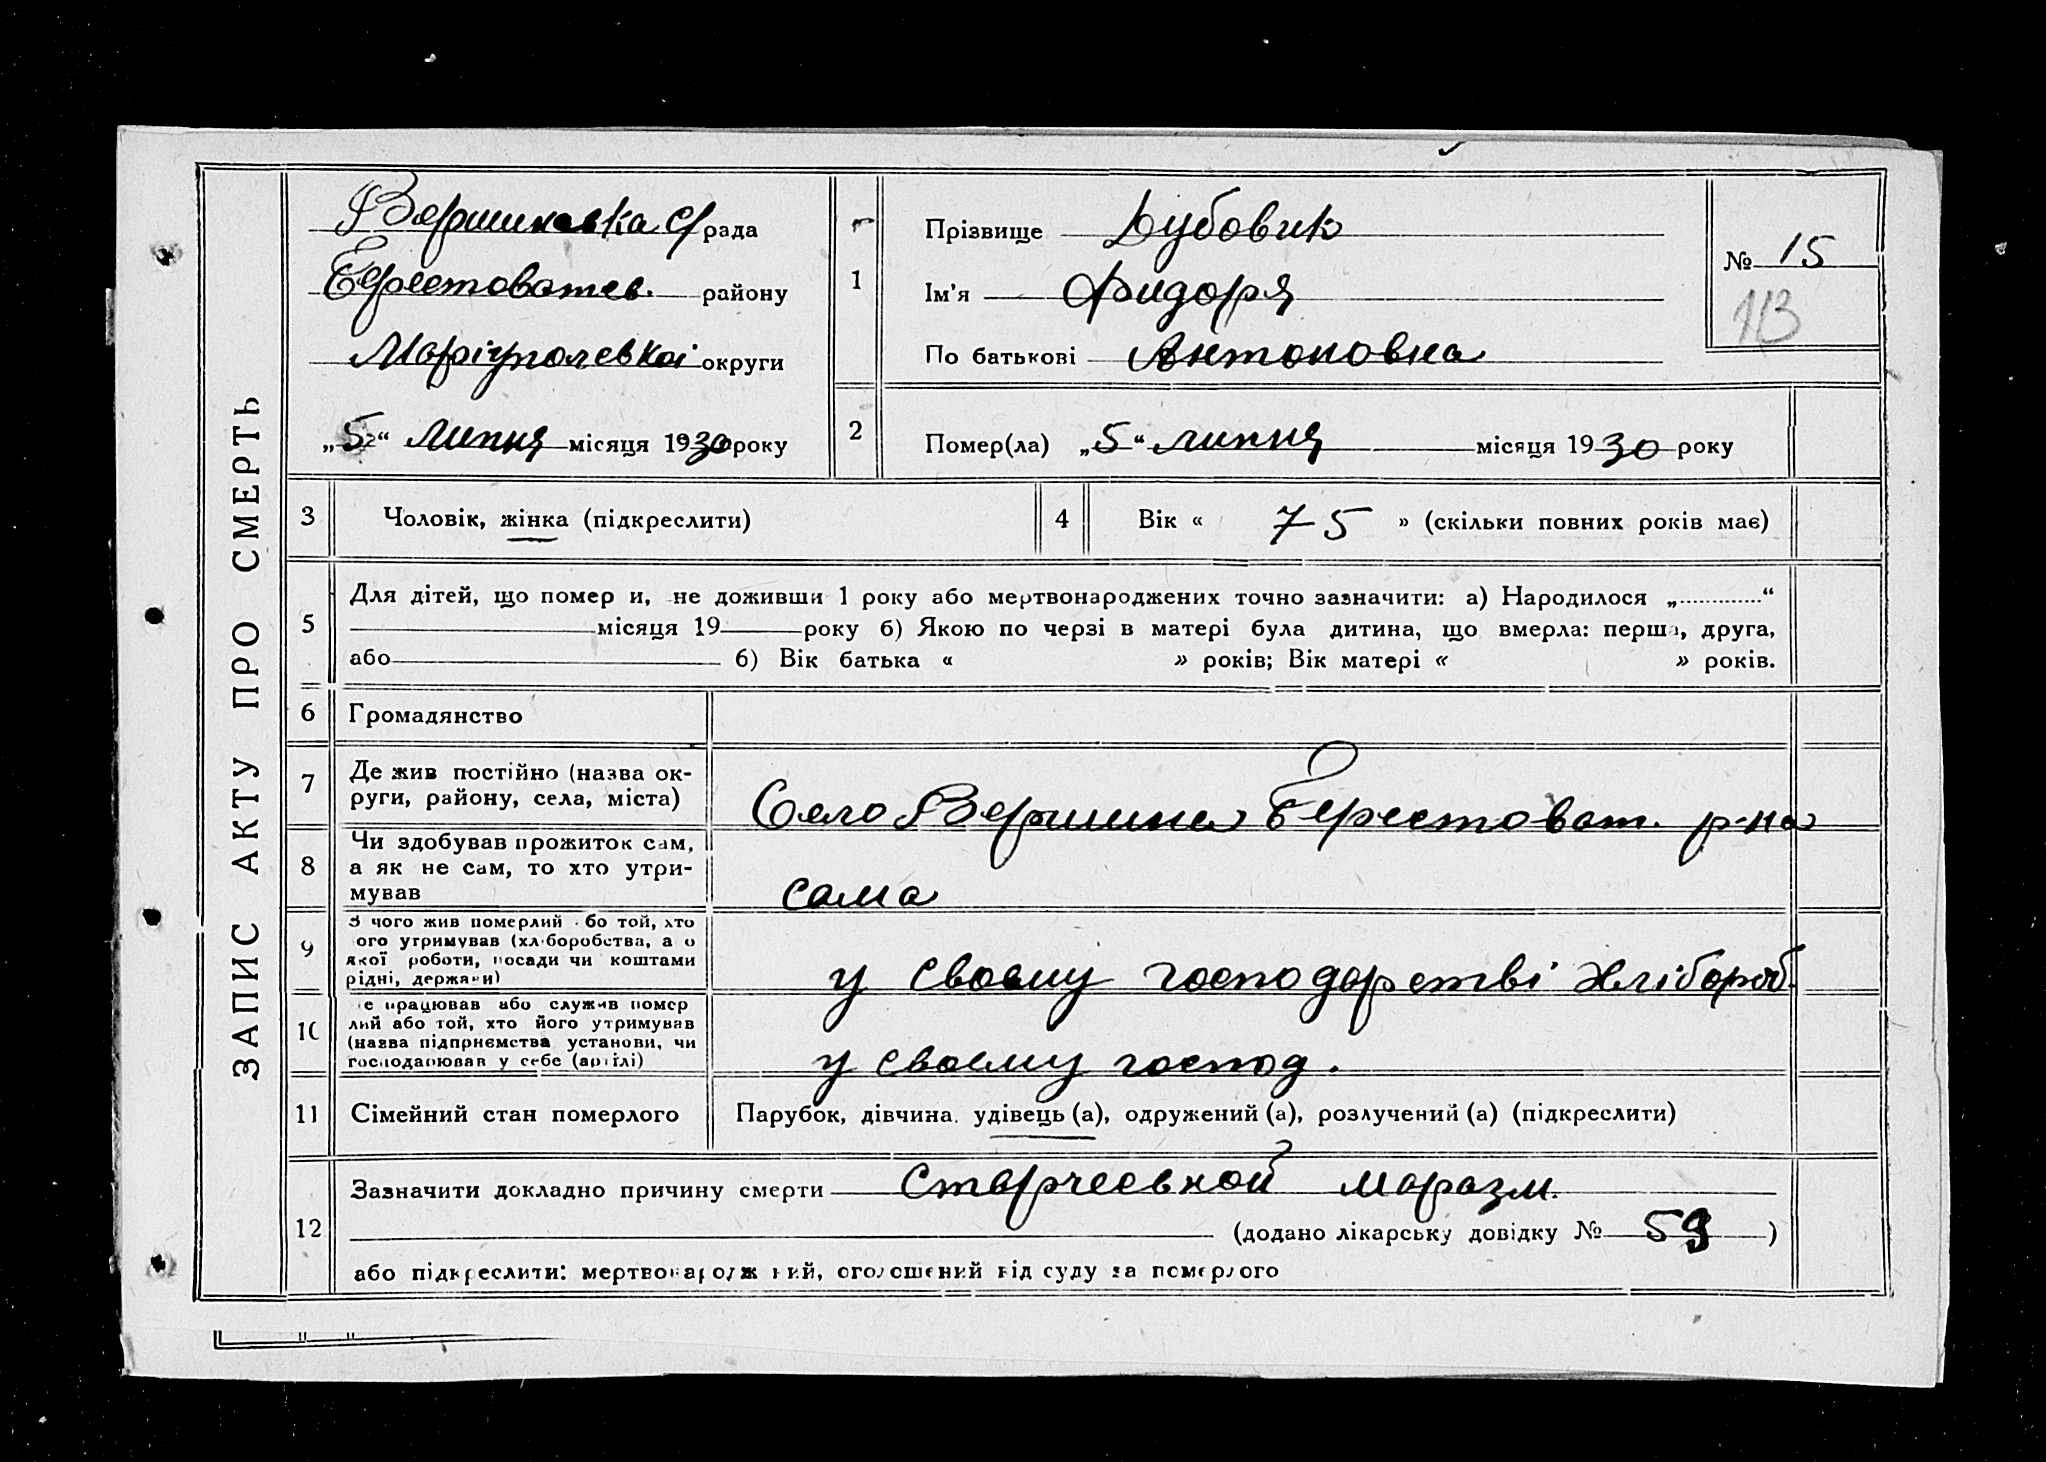 ЗАПИС АКТУ ПРО СМЕРТЬ
Вершиновка С/рада
Берестоватев. району
Маріупольевкоі округи
„5“ липня місяця 1930 року
1
Прізвище Дубовик
Ім'я Фидоря
По батькові Антоновна
№ 15
113
2
Помер(ла) „5“ липня місяця 1930 року
3 Чоловік, жінка (підкреслити)
4 Вік « 75 » (скільки повних років має)
5
Для дітей, що помер и, не доживши 1 року або мертвонароджених точно зазначити: а) Народилося „............“
місяця 19 року б) Якою по черзі в матері була дитина, що вмерла: перша, друга,
або б) Вік батька « » років; Вік матері « » років.
6 Громадянство
7
Де жив постійно (назва ок-
руги, району, села, міста)
Село Вершина Берестоват. р-на
8
Чи здобував прожиток сам,
а як не сам, то хто утри-
мував
сама
9
З чого жив померлий або той, хто
ого утримував (хліборобства, а о
якої роботи, посади чи коштами
рідні, держави)
у своему господарстві хлібороб.
10
е працював або служив помер
лий або той, хто його утримував
(назва підприємства установи, чи
господарював у себе (артілі)
у своему господ.
11 Сімейний стан померлого
Парубок, дівчина. удівець (а), одружений (а), розлучений (а) (підкреслити)
12
Зазначити докладно причину смерти Старчеевкой маразм.
(додано лікарську довідку № 59 )
або підкреслити: мертвонароджений, оголошений від суду за померлого